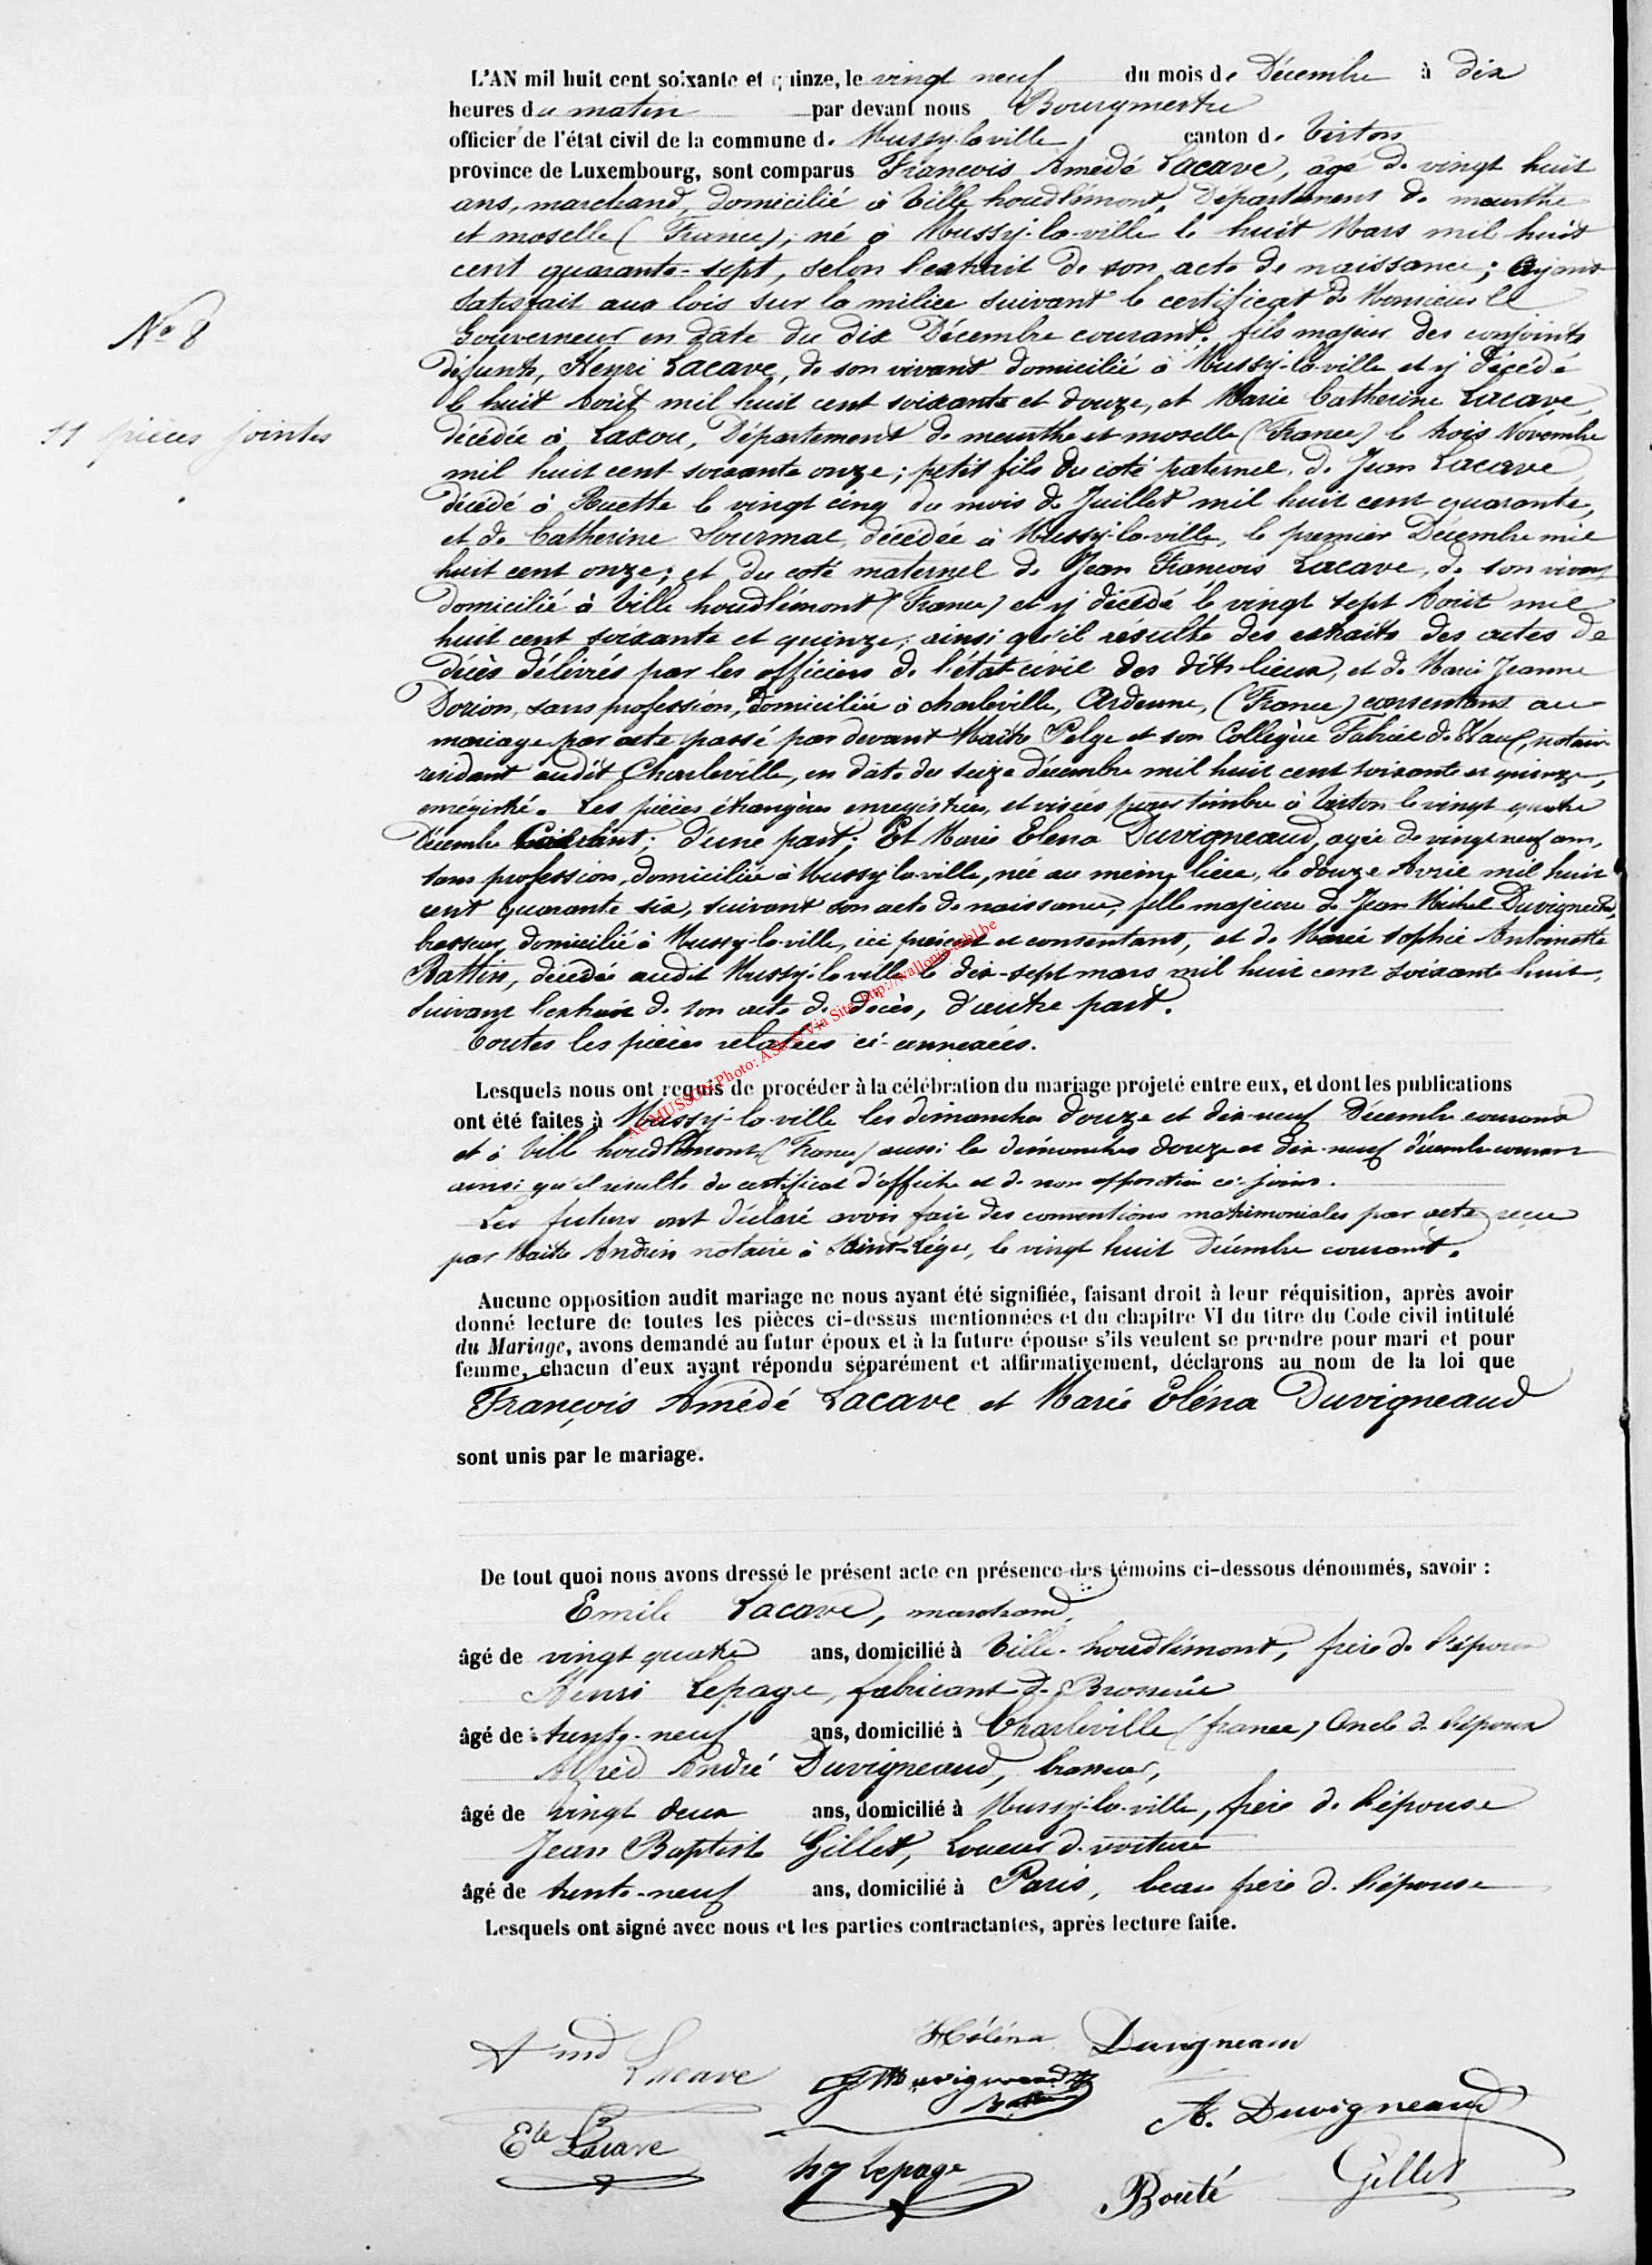 L'AN mil huit cent soixante et quinze, le vingt neuf du mois de Décembre à dix
heures du matin par devant nous Bourgmestre
officier de l'état civil de la commune de Mussy-la-ville canton de Virton
province de Luxembourg, sont comparus François Amédé Lacave, agé de vingt huit
ans, marchand, domicilié à Ville houdlémont, Département de meurthe
et moselle (France), né à Mussy-la-ville le huit Mars mil huit
cent quarante-sept, selon l'extrait de son acte de naissance; ayant
satisfait aux lois sur la milice suivant le certificat de Monsieur le
Gouverneur en date du dix Décembre courant. fils majeur des conjoints
N° 8
défunts, Henri Lacave, de son vivant domicilié à Mussy-la-ville et y décédé
le huit Août mil huit cent soixante et douze, et Marie Catherine Lacave,
11 pièces jointes
décédée à Laxou, Département de meurthe et moselle (France) le trois Novembre
mil huit cent soixante onze; petit fils du coté paternel de Jean Lacave
décédé à Ruette le vingt cinq du mois de Juillet mil huit cent quarante,
et de Catherine décédée à Mussy-la-ville, le premier Décembre mil
huit cent onze; et du coté maternel de Jean François Lacave, de son vivant
domicilié à Ville houdlémont (France) et y décédé le vingt sept Août mil
huit cent soixante et quinze; ainsi qu'il résulte des extraits des actes de
décès délivrés par les officiers de l'état civil des dits lieux, et de Marie Jeanne
Dorion, sans profession, domiciliée à charleville, Ardenne, (France) consentant au
mariage par acte passé par devant Maître et son Collègue notaire
résidant audit Charleville, en date du seize décembre mil huit cent soixante et quinze,
enrégistré. Les pièces étrangères enregistrées et visées pour timbre à Virton le vingt quatre
Décembre Courant; d'une part; Et Marie Elena Duvigneaud, agée de vingt neuf ans,
sans profession, domiciliée à Mussy-la-ville, née au même lieu, le douze Avril mil huit
cent quarante six, suivant son acte de naissance, fille majeure de Jean Michel Duvigneaud,
brasseur, domicilié à Mussy-la-ville, ici présent et consentant, et de Marie Sophie Antoinette
Battin, décédée audit Mussy-la-ville le dix-sept mars mil huit cent soixante huit,
suivant l'extrait de son acte de décès, d'autre part.
Toutes les pièces relatées ci-annexées.
Lesquels nous ont requis de procéder à la célébration du mariage projeté entre eux, et dont les publications
ont été faites à Mussy-la-ville les dimanches douze et dix-neuf Décembre courant
et à Ville houdlémont (France) aussi les dimanches douze et dix-neuf décembre courant
ainsi qu'il résulte du certificat d'affiche et de non opposition ci-joint.
Les futurs ont déclaré avoir fait des conventions matrimoniales par acte reçu
par Maître Andrin notaire à Saint-Léger, le vingt huit décembre courant.
Aucune opposition audit mariage ne nous ayant été signifiée, faisant droit à leur réquisition, après avoir
donné lecture de toutes les pièces ci-dessus mentionnées et du chapitre VI du titre du Code civil intitulé
du Mariage, avons demandé au futur époux et à la future épouse s'ils veulent se prendre pour mari et pour
femme, chacun d'eux ayant répondu séparément et affirmativement, déclarons au nom de la loi que
François Amédé Lacave et Marie Eléna Duvigneaud
sont unis par le mariage.
De tout quoi nous avons dressé le présent acte en présence des témoins ci-dessous dénommés, savoir :
Emile Lacave, marchand,
âgé de vingt quatre ans, domicilié à Ville-houdlémont, frère de l'époux
Henri Lepage, fabricant de Brosserie
âgé de trente-neuf ans, domicilié à Charleville (france) Oncle de l'époux
Alfred André Duvigneaud, brasseur,
âgé de vingt deux ans, domicilié à Mussy-la-ville, frère de l'épouse
Jean Baptiste Gillet, Loueur de voiture
âgé de trente-neuf ans, domicilié à Paris, beau frère de l'épouse
Lesquels ont signé avec nous et les parties contractantes, après lecture faite.
Amd Lacave
Héléna Duvigneaud
Duvigneaud
A. Duvigneaud
Ele Lacave
hy Lepage
Bouté
Gillet
AC MUSSON Photo: ASBL Via Site http://wallonia-asbl.be